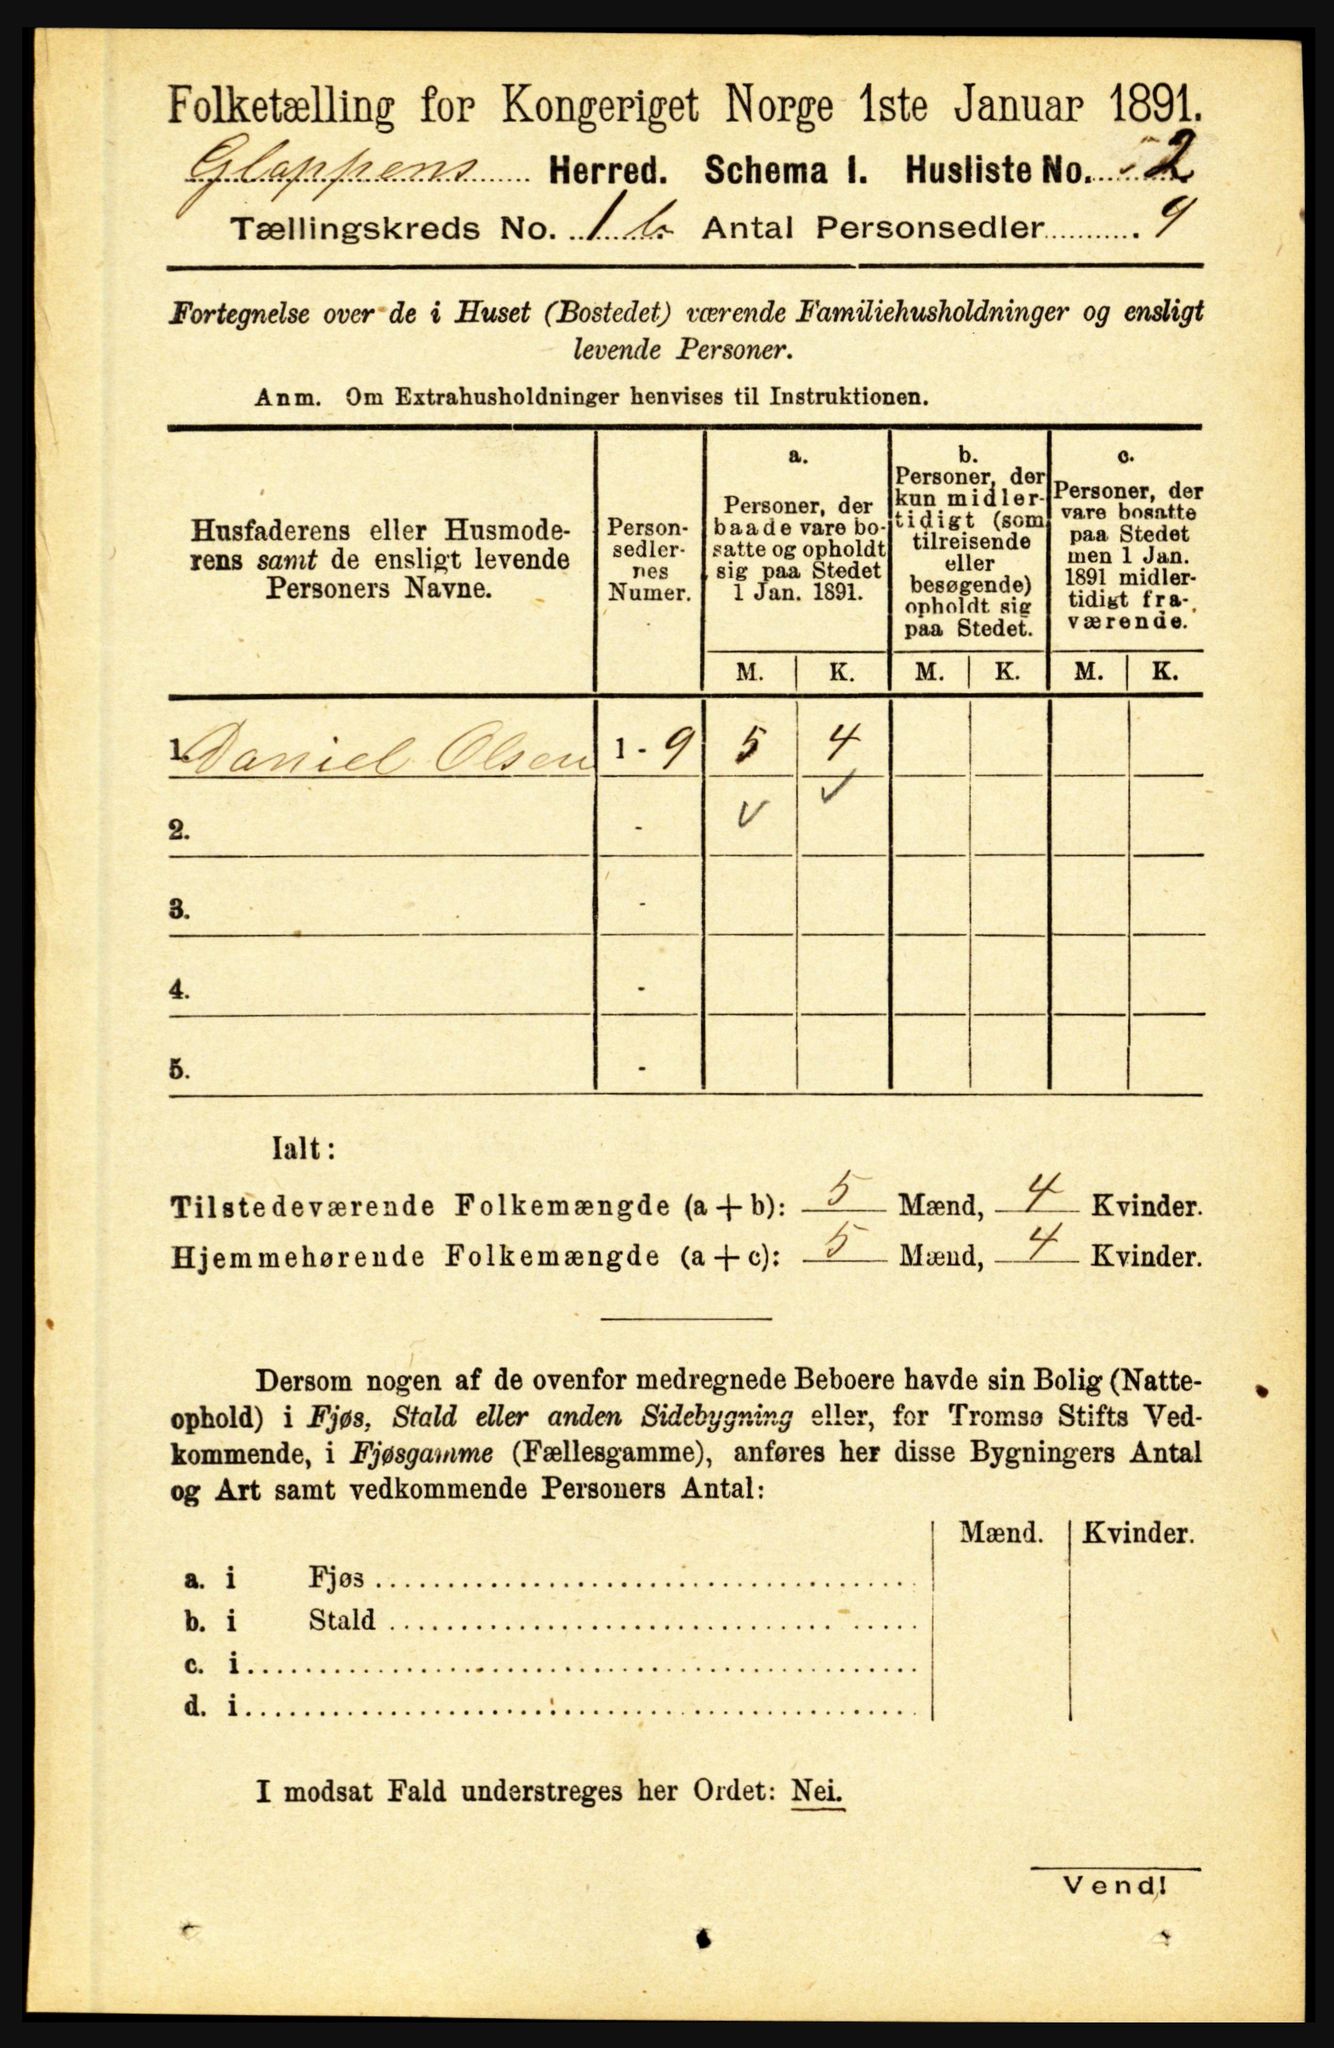 Folketælling for Kongeriget Norge 1ste Januar 1891.
Gloppens Herred. Schema I. Husliste No. 2
Tællingskreds No. 1 b. Antal Personsedler 9
Fortegnelse over de i Huset (Bostedet) værende Familiehusholdninger og ensligt
levende Personer.
Anm. Om Extrahusholdninger henvises til Instruktionen.
Husfaderens eller Husmode-
rens samt de ensligt levende
Personers Navne.
Person-
sedler-
nes
Numer.
a.
Personer, der
baade vare bo-
satte og opholdt
sig paa Stedet
1 Jan. 1891.
b.
Personer, der
kun midler-
tidigt (som
tilreisende
eller
besøgende)
opholdt sig
paa Stedet.
c.
Personer, der
vare bosatte
paa Stedet
men 1 Jan.
1891 midler-
tidigt fra-
værende.
M. K. M. K. M. K.
1. Daniel Olsen 1 - 9 5 4
2. -
3. -
4. -
5. -
Ialt:
Tilstedeværende Folkemængde (a + b): 5 Mænd, 4 Kvinder.
Hjemmehørende Folkemængde (a + c): 5 Mænd, 4 Kvinder.
Dersom nogen af de ovenfor medregnede Beboere havde sin Bolig (Natte-
ophold) i Fjøs, Stald eller anden Sidebygning eller, for Tromsø Stifts Ved-
kommende, i Fjøsgamme (Fællesgamme), anføres her disse Bygningers Antal
og Art samt vedkommende Personers Antal:
Mænd. Kvinder.
a. i Fjøs
b. i Stald
c. i
d. i
I modsat Fald understreges her Ordet: Nei.
Vend!